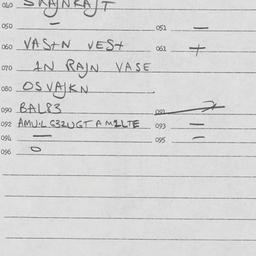 040 SKAJNKAJT
050 — 051 —
060 VAS+N VES+ 061 +
070 IN RAJN VASE
080 OSVAJKN
090 BAL83 091
092 AMU·L G32UGT AM2LTE 093 —
094 — 095 —
096 O